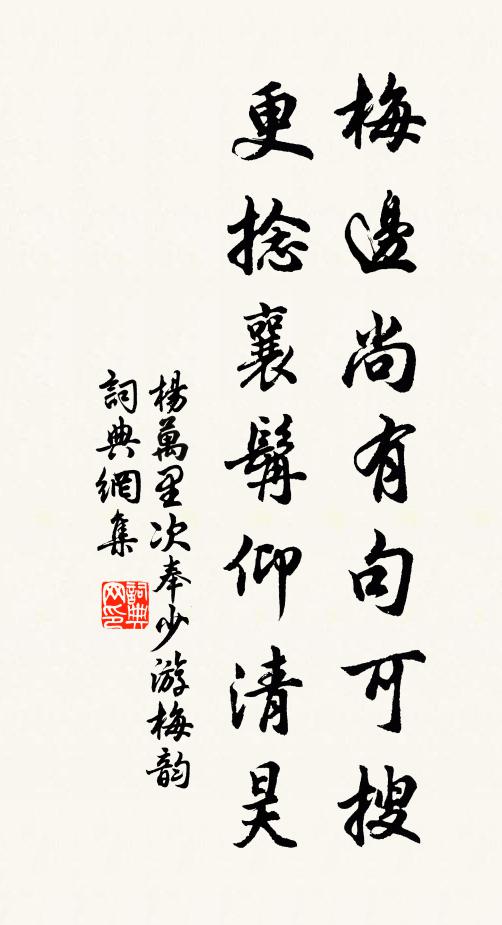 梅邊尚有句可搜
更捻襄髯仰清昊
楊萬里次奉少游梅韵
詞典網集
詞典网印